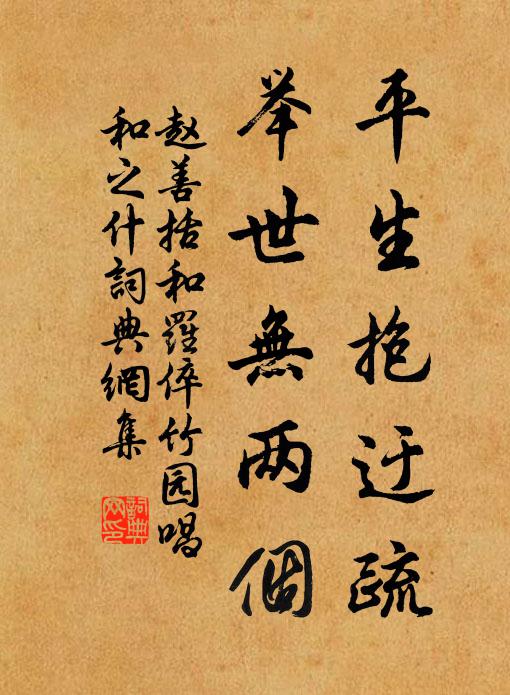 平生抱迂疏
举世無两個
赵善括和羅倅竹园唱
和之什詞典網集
詞典
网印